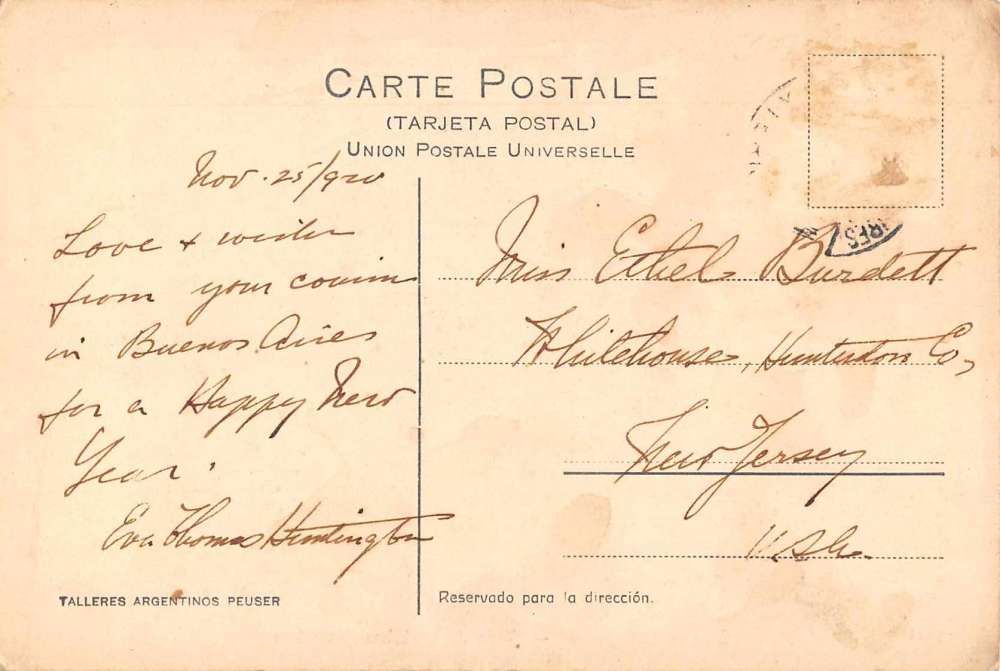 CARTE POSTALE
(TARJETA POSTAL)
UNION POSTALE UNIVERSELLE
Nov. 25/920
Love + wishes
from your cousin
in Buenos Aires
for a Happy New
Year.
Eva Thomas Huntington
TALLERES ARGENTINOS PEUSER
Miss Ethel Burdett
Whitehouse, Hunterdon Co,
New Jersey
U.S.A.
Reservado para la dirección.
IRES